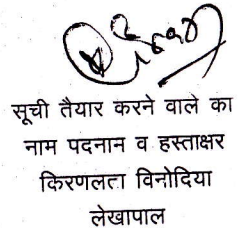 सूची तैयार करने वाले का
नाम पदनान व हस्ताक्षर
किरणलता विनोदिया
लेखापाल